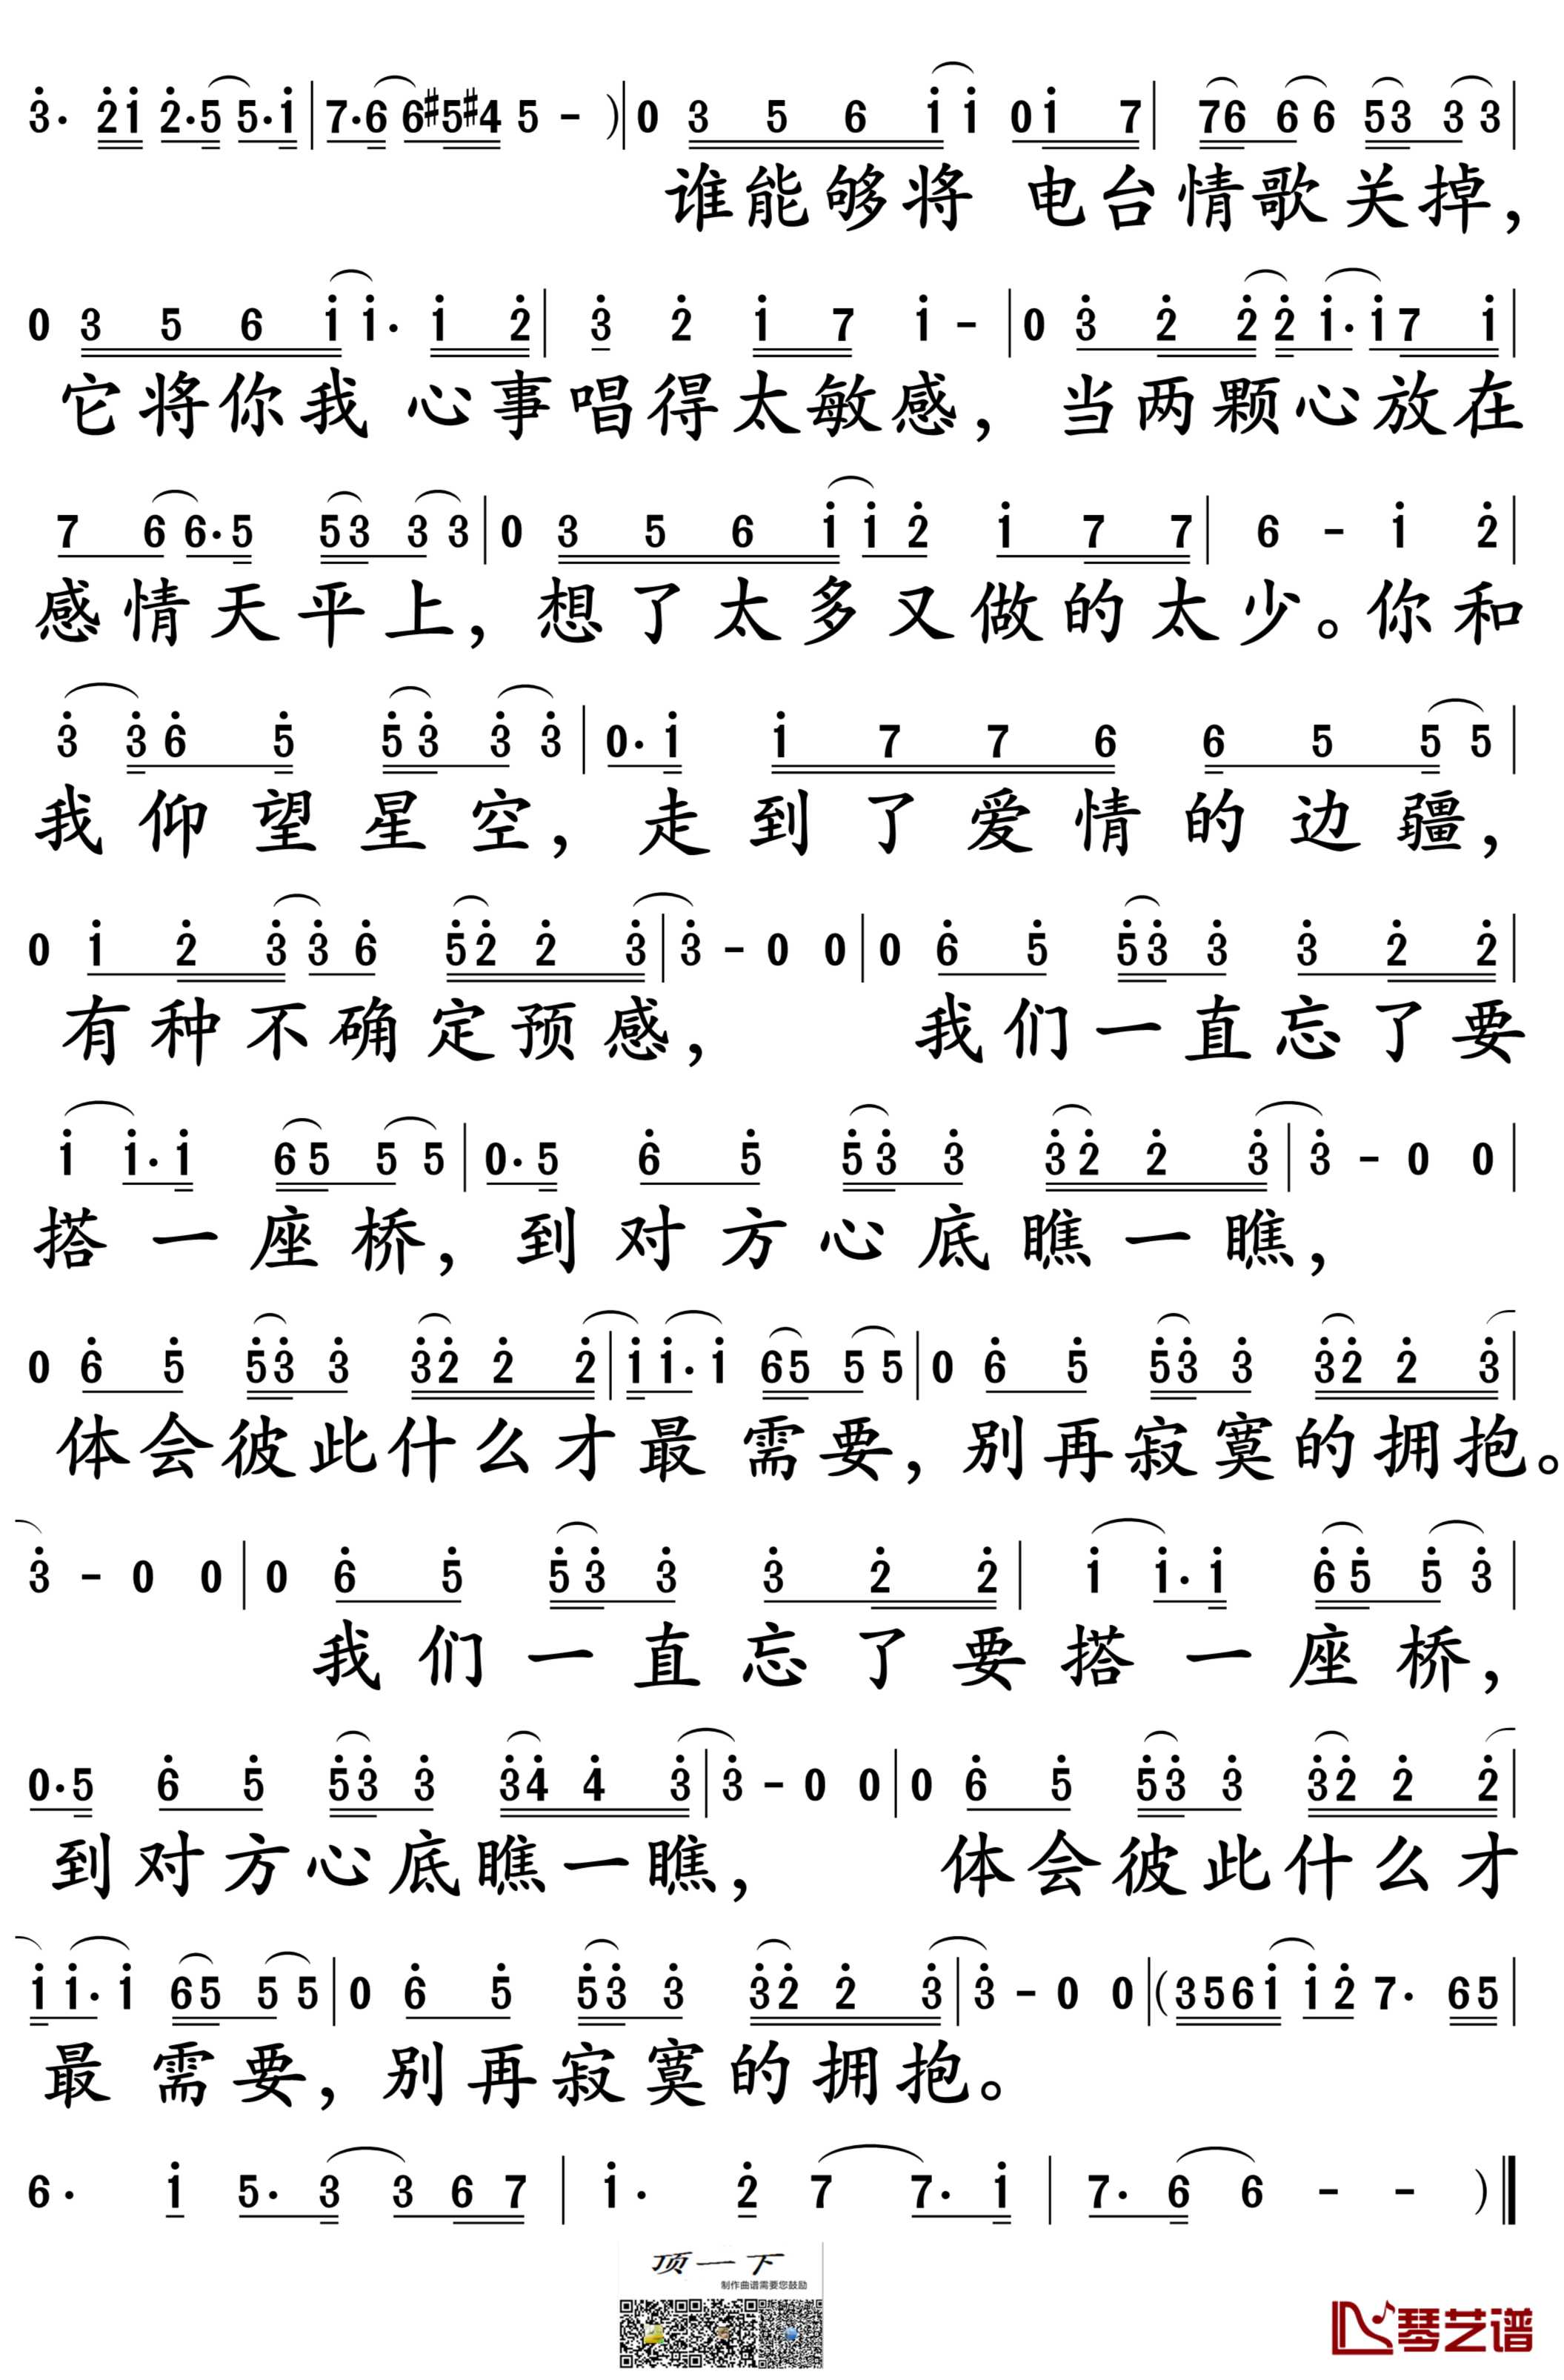 3̇· 2̇1̇ 2̇·5 5·1̇ | 7·6 6#5#4 5 - ) | 0 3 5 6 1̇ 1̇ 01̇ 7 | 76 6 6 53 3 3 |
谁能够将 电台情歌关掉,
0 3 5 6 1̇ 1̇· 1̇ 2̇ | 3̇ 2̇ 1̇ 7 1̇ - | 0 3̇ 2̇ 2̇ 2̇ 1̇· 1̇ 7 1̇ |
它将你我 心事唱得太敏感, 当两颗心放在
7 6 6·5 53 3 3 | 0 3 5 6 1̇ 1̇ 2̇ 1̇ 7 7 | 6 - 1̇ 2̇ |
感情天平上, 想了太多又做的太少。你和
3̇ 3̇ 6̇ 5̇ 5̇3̇ 3̇ 3̇ | 0·1̇ 1̇ 7 7 6 6 5 5 5 |
我仰望星空, 走到了爱情的边疆,
0 1̇ 2̇ 3̇ 3̇ 6̇ 5̇2̇ 2̇ 3̇ | 3̇ - 0 0 | 0 6̇ 5̇ 5̇3̇ 3̇ 3̇ 2̇ 2̇ |
有种不确定预感, 我们一直忘了要
1̇ 1̇·1̇ 65 5 5 | 0·5 6̇ 5̇ 5̇3̇ 3̇ 3̇2̇ 2̇ 3̇ | 3̇ - 0 0 |
搭一座桥, 到对方心底瞧一瞧,
0 6̇ 5̇ 5̇3̇ 3̇ 3̇2̇ 2̇ 2̇ | 1̇ 1̇·1̇ 65 5 5 | 0 6̇ 5̇ 5̇3̇ 3̇ 3̇2̇ 2̇ 3̇ |
体会彼此什么才最 需要, 别再寂寞的拥抱。
3̇ - 0 0 | 0 6̇ 5̇ 5̇3̇ 3̇ 3̇ 2̇ 2̇ | 1̇ 1̇·1̇ 6̇5̇ 5̇ 3̇ |
我们一直忘了要搭一座桥,
0·5 6̇ 5̇ 5̇3̇ 3̇ 3̇4̇ 4̇ 3̇ | 3̇ - 0 0 | 0 6̇ 5̇ 5̇3̇ 3̇ 3̇2̇ 2̇ 2̇ |
到对方心底瞧一瞧, 体会彼此什么才
1̇ 1̇·1̇ 65 5 5 | 0 6̇ 5̇ 5̇3̇ 3̇ 3̇2̇ 2̇ 3̇ | 3̇ - 0 0 | (3561̇ 1̇2̇ 7· 65 |
最 需要, 别再寂寞的拥抱。
6· 1̇ 5·3 3 6 7 | 1̇· 2̇ 7 7·1̇ | 7·6 6 - - )‖
顶一下
制作曲谱需要您鼓励
琴艺谱